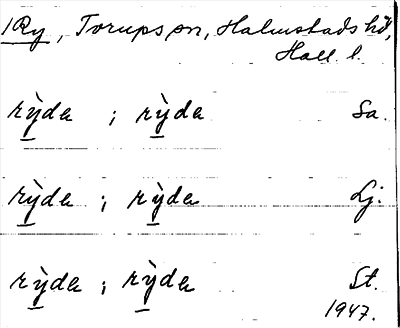 1Ry, Torups sn, Halmstads hd,
Hall. l.
rỳde ; rỳde Sa.
rỳde ; rỳde Lj.
rỳde ; rỳde St.
1947.